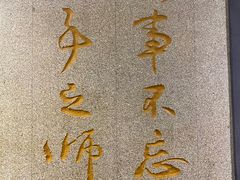 事不忘
事之师